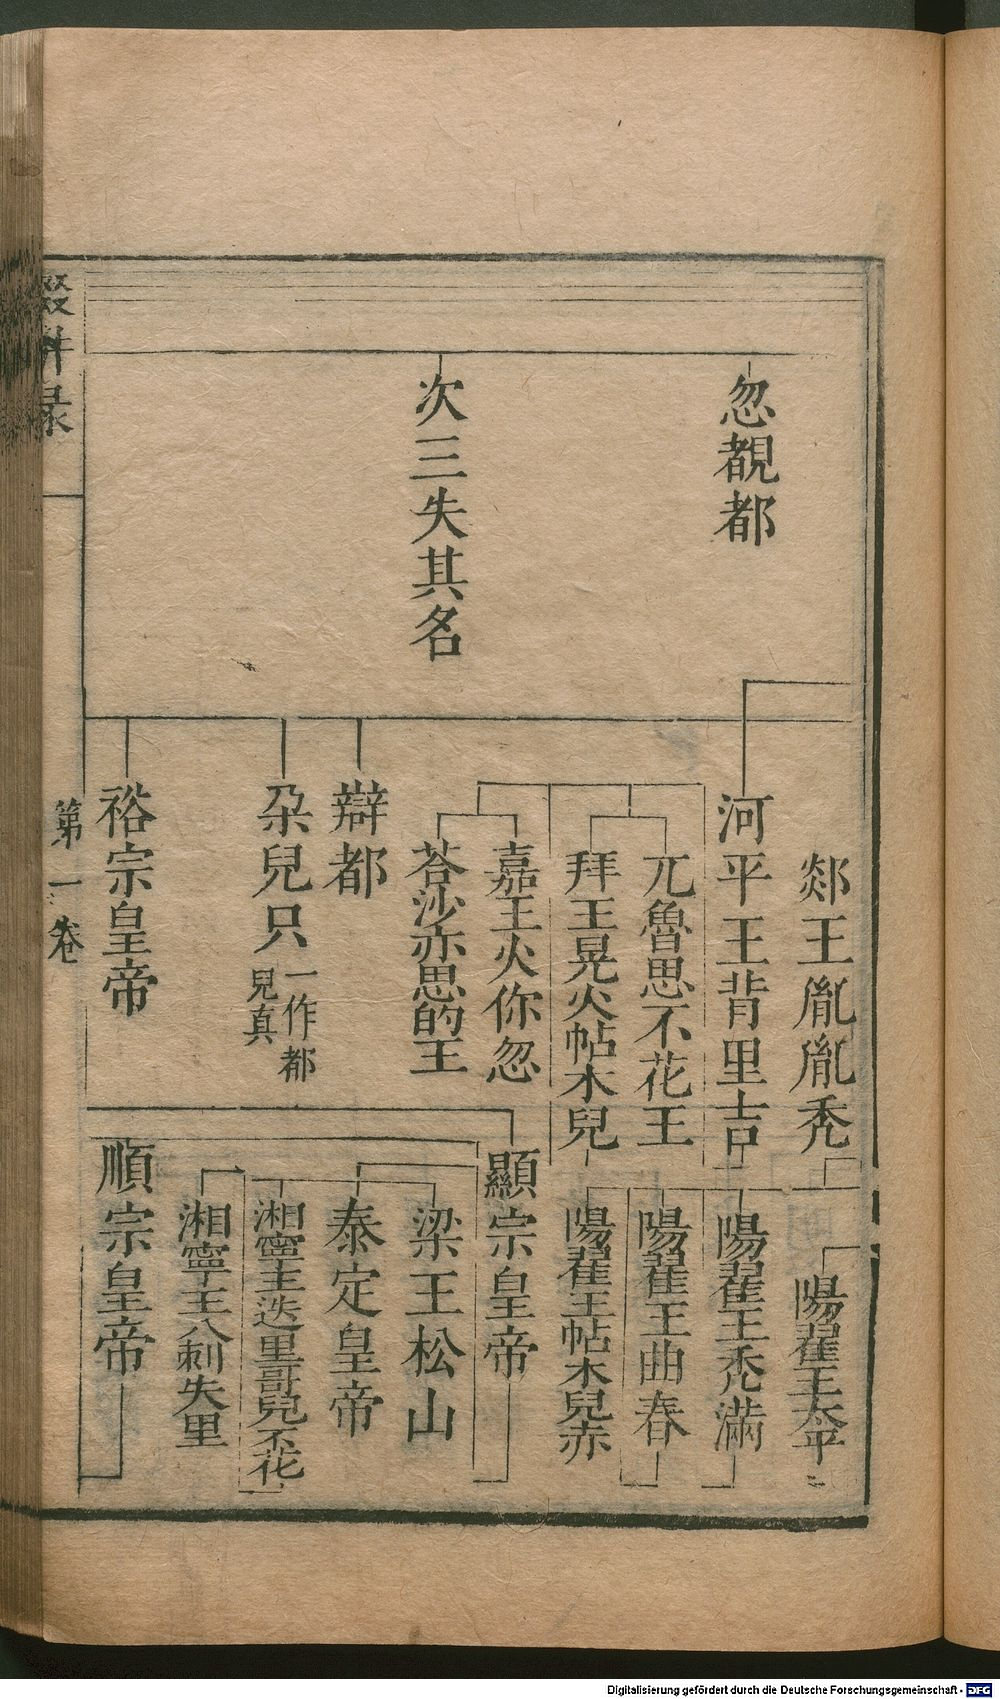 忽覩都
次三失其名
郯王胤胤禿
河平王背里吉
兀魯思不花王
拜王晃火帖木兒
嘉王火你忽
荅沙亦思的王
辯都
朶兒只 一作都兒真
裕宗皇帝
陽翟王太平
陽翟王禿滿
陽翟王曲春
陽翟王帖木兒赤
顯宗皇帝
梁王松山
泰定皇帝
湘寧王迭里哥兒不花
湘寧王八剌失里
順宗皇帝
第一卷
Digitalisierung gefördert durch die Deutsche Forschungsgemeinschaft - DFG